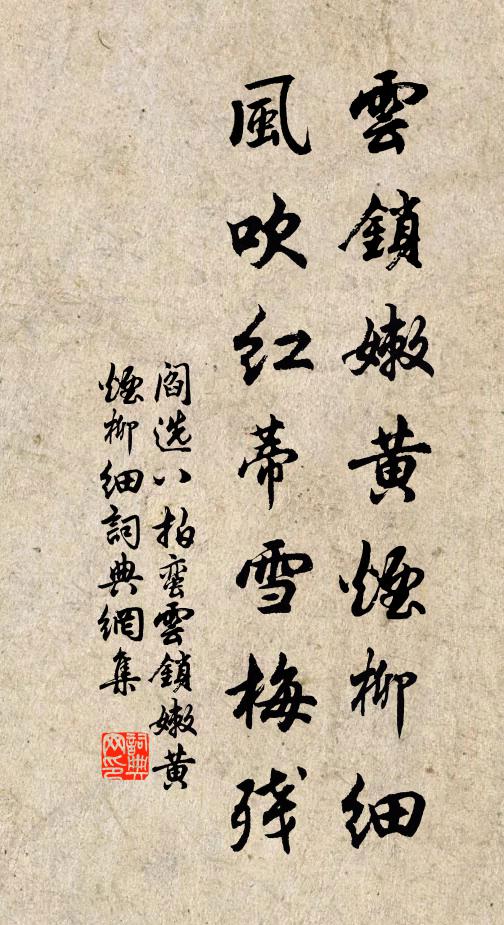 雲鎖嫩黃煙柳細
風吹紅蒂雪梅残
閻选八拍蠻雲鎖嫩黃
煙柳细詞典網集
詞典
网印